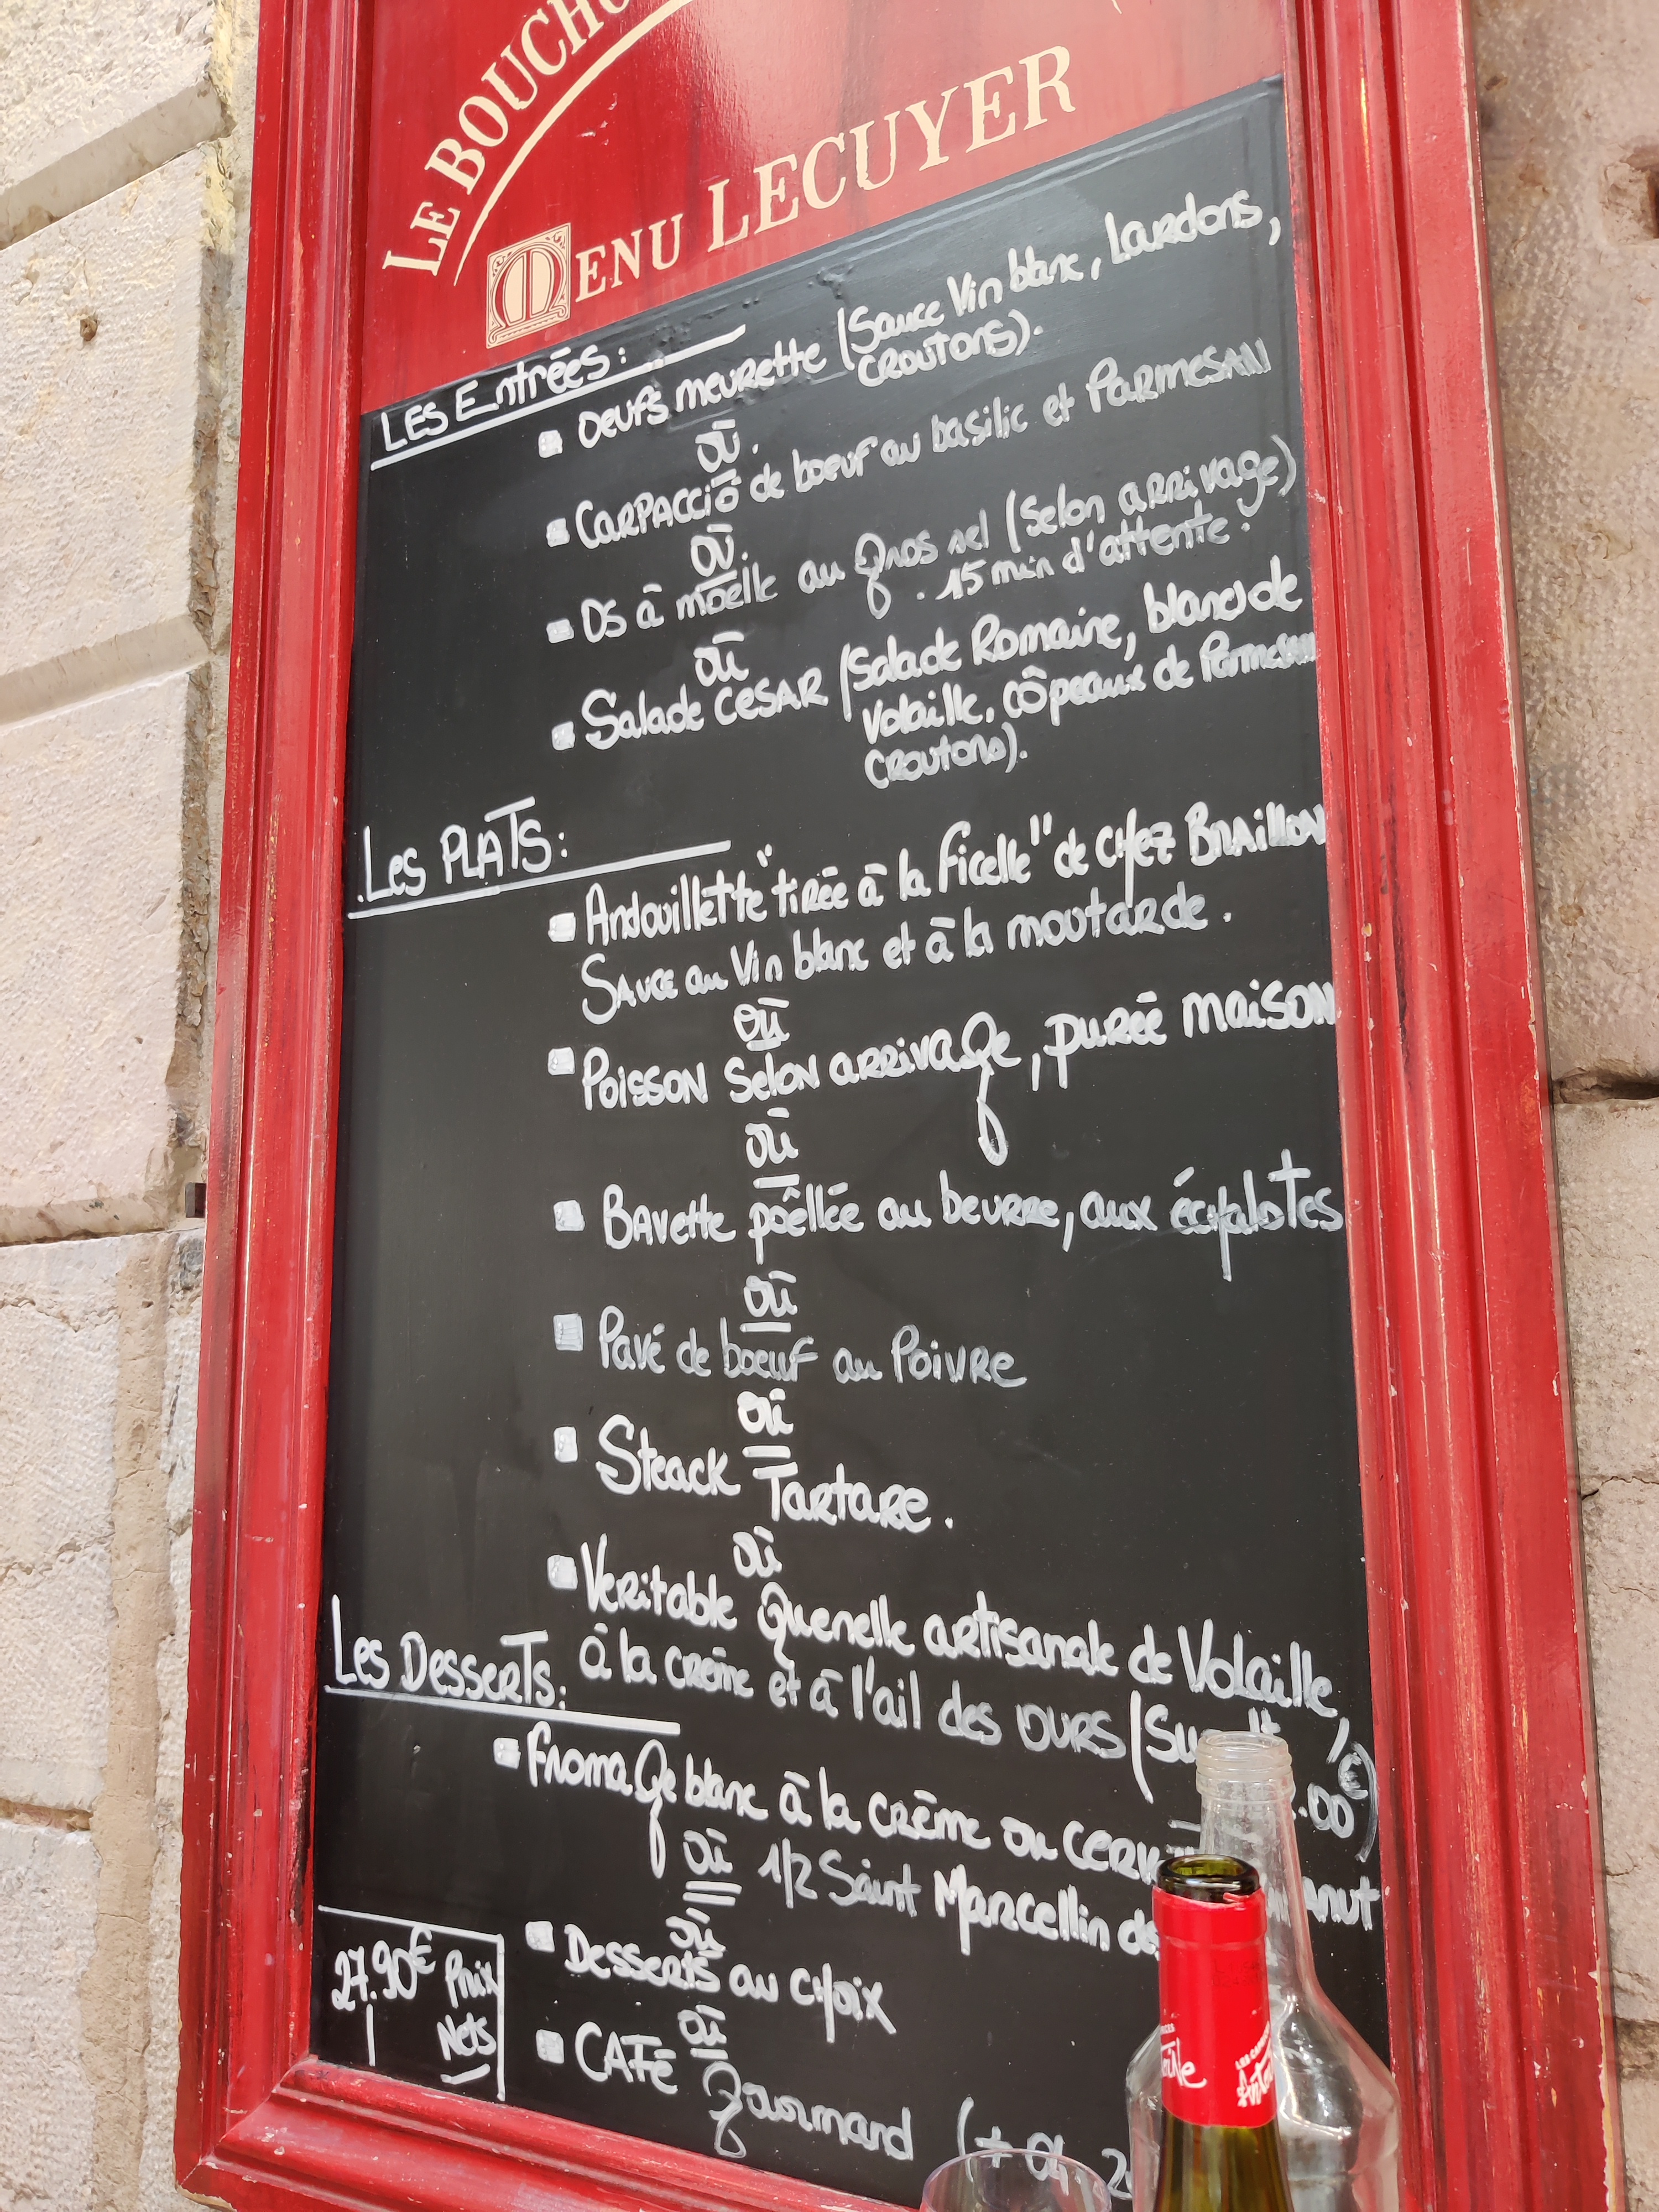 LE BOUCHO
MENU LECUYER
LES Entrées :
Oeufs meurette (Sauce Vin blanc, Lardons,
CROUTONS).
OÙ.
CARPACCIO de boeuf au basilic et PARMESAN
OÙ.
OS à moelle au gros sel (Selon arrivage)
. 15 min d'attente.
OÙ
Salade CESAR (Salade Romaine, blancs de
Volaille, côpeaux de Parmesan
Croutons).
Les PLATS :
Andouillette "tirée à la Ficelle" de chez BRAILLON
SAUCE au Vin blanc et à la moutarde.
OÙ
POISSON Selon ARRIVAGE, purée maison
OÙ
BAVette poêllée au beurre, aux échalotes
OÙ
Pavé de boeuf au Poivre
OÙ
Steack Tartare.
OÙ
Veritable Quenelle artisanale de Volaille,
à la crème et à l'ail des OURS (Su .00€)
Les Desserts :
Fromage blanc à la crème ou
OÙ 1/2 Saint Marcellin de
OÙ
Desserts au choix
OÙ
CAFé Gourmand (+ 04.
27.90€ Prix
Nets